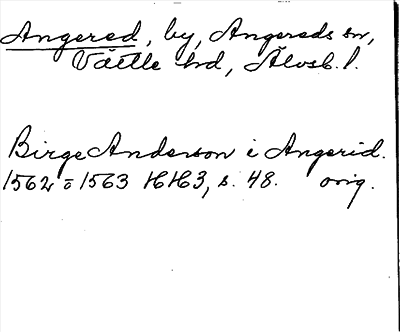 Angered, by, Angereds sn,
Vättle hd, Älvsb. l.
Birge Anderson i Angerid.
1562 o 1563 HH3, s. 48. orig.